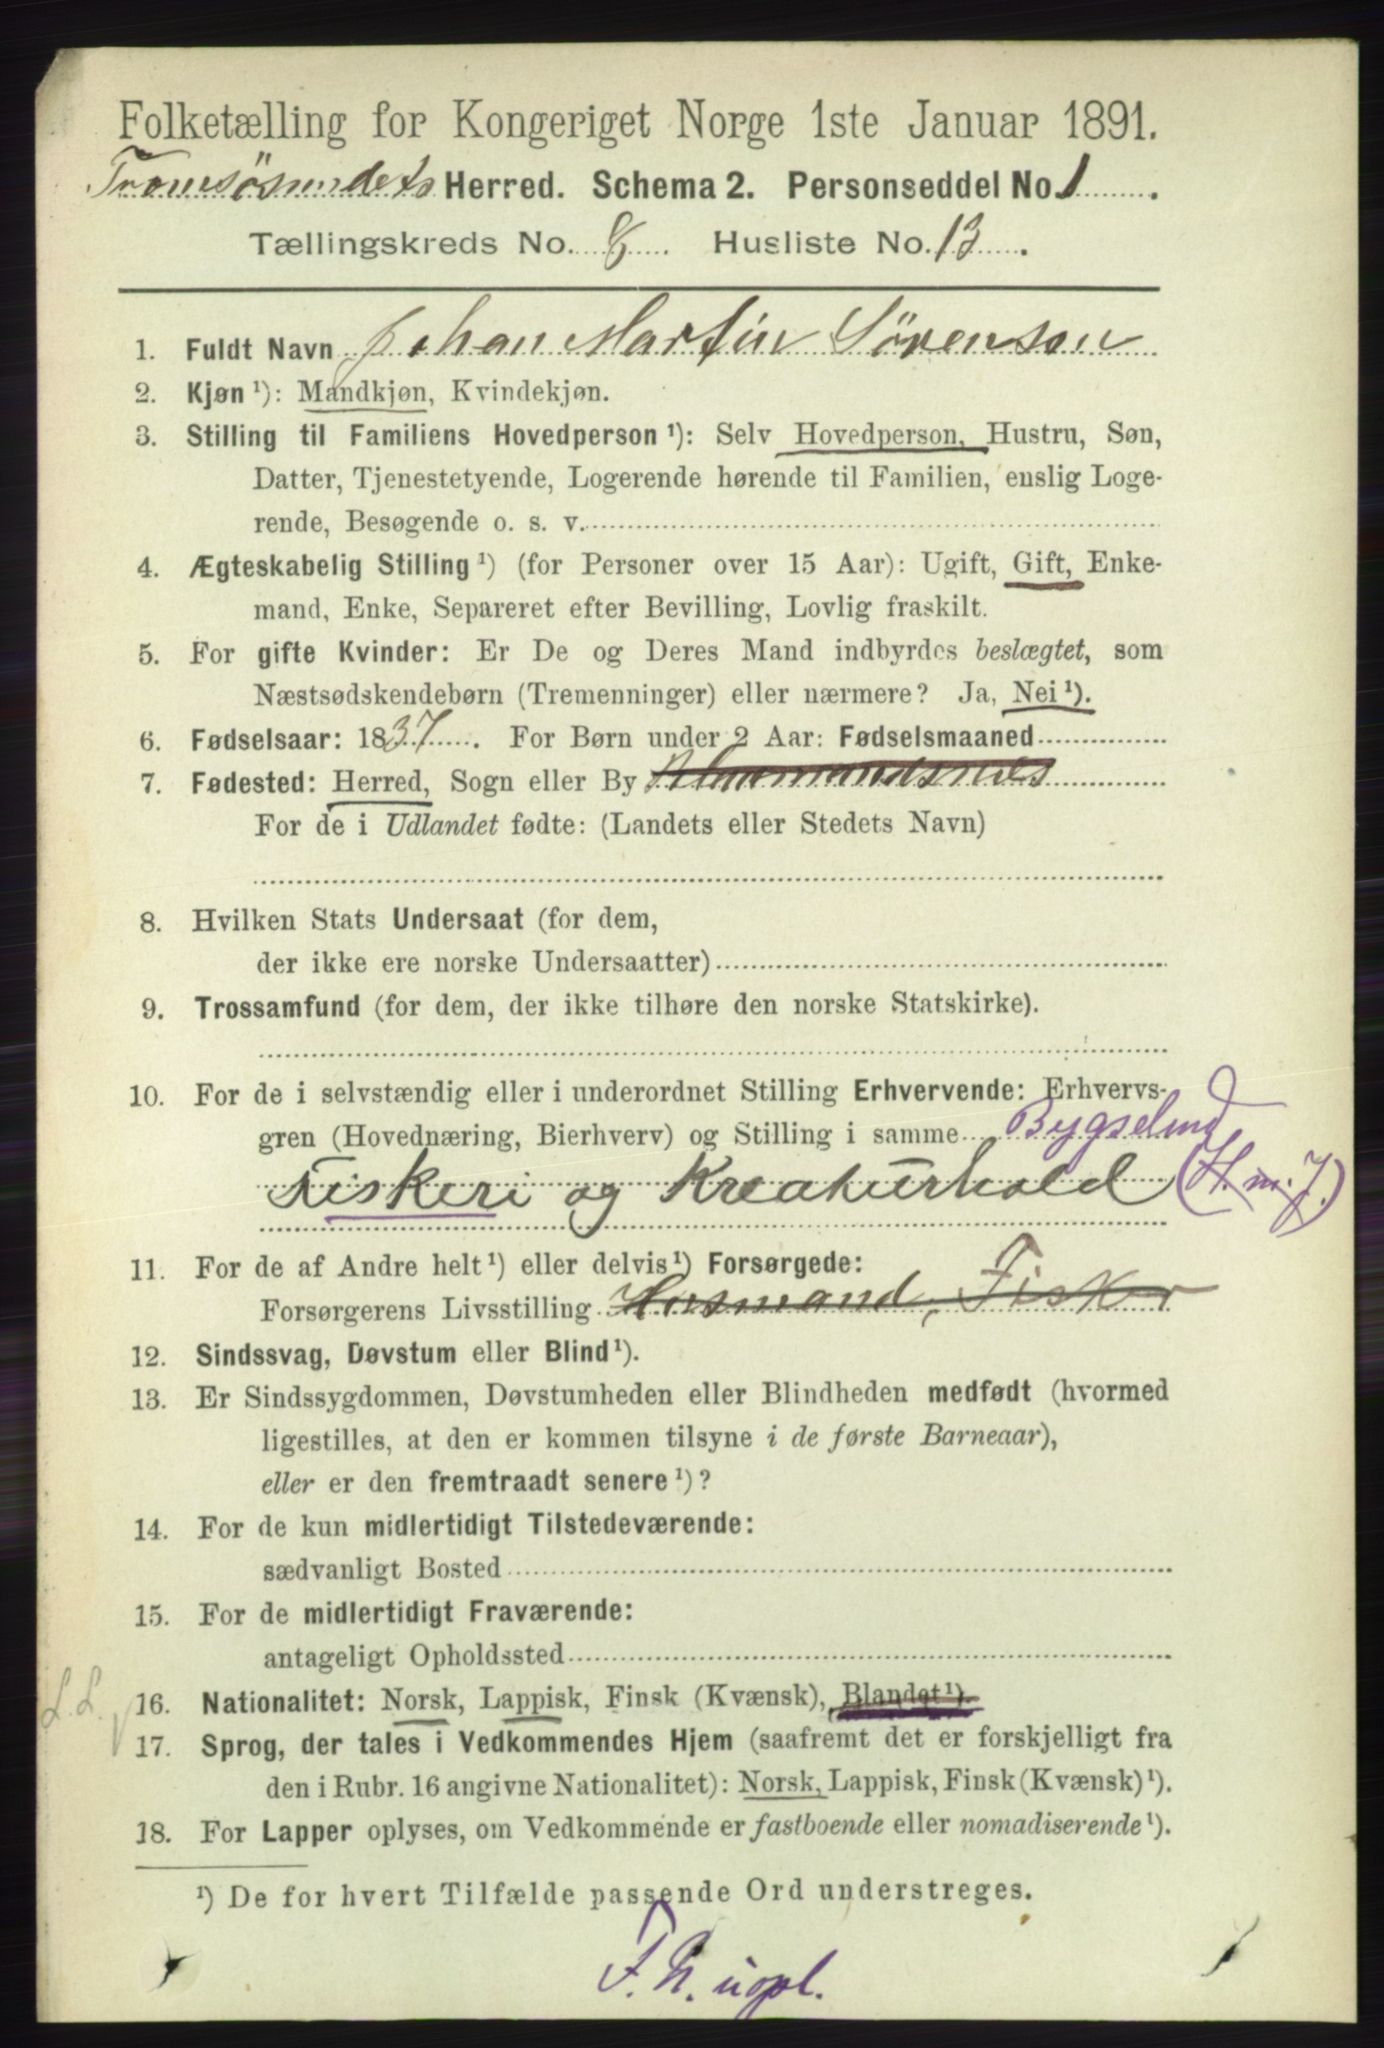 Folketælling for Kongeriget Norge 1ste Januar 1891.
Tromsøsundets Herred. Schema 2. Personseddel No. 1
Tællingskreds No. 8 Husliste No. 13.
1. Fuldt Navn Johan Martin Sörensen
2. Kjøn ¹): Mandkjøn, Kvindekjøn.
3. Stilling til Familiens Hovedperson ¹): Selv Hovedperson, Hustru, Søn,
Datter, Tjenestetyende, Logerende hørende til Familien, enslig Loge-
rende, Besøgende o. s. v.
4. Ægteskabelig Stilling ¹) (for Personer over 15 Aar): Ugift, Gift, Enke-
mand, Enke, Separeret efter Bevilling, Lovlig fraskilt.
5. For gifte Kvinder: Er De og Deres Mand indbyrdes beslægtet, som
Næstsødskendebørn (Tremenninger) eller nærmere? Ja, Nei ¹).
6. Fødselsaar: 1837. For Børn under 2 Aar: Fødselsmaaned
7. Fødested: Herred, Sogn eller By
For de i Udlandet fødte: (Landets eller Stedets Navn)
8. Hvilken Stats Undersaat (for dem,
der ikke ere norske Undersaatter)
9. Trossamfund (for dem, der ikke tilhøre den norske Statskirke).
10. For de i selvstændig eller i underordnet Stilling Erhvervende: Erhvervs-
gren (Hovednæring, Bierhverv) og Stilling i samme Bygselmd
Fiskeri og Kreaturhold (H. m. J.)
11. For de af Andre helt ¹) eller delvis ¹) Forsørgede:
Forsørgerens Livsstilling Husmand, Fisker
12. Sindssvag, Døvstum eller Blind ¹).
13. Er Sindssygdommen, Døvstumheden eller Blindheden medfødt (hvormed
ligestilles, at den er kommen tilsyne i de første Barneaar),
eller er den fremtraadt senere ¹)?
14. For de kun midlertidigt Tilstedeværende:
sædvanligt Bosted
15. For de midlertidigt Fraværende:
antageligt Opholdssted
L. L.
16. Nationalitet: Norsk, Lappisk, Finsk (Kvænsk), Blandet ¹).
17. Sprog, der tales i Vedkommendes Hjem (saafremt det er forskjelligt fra
den i Rubr. 16 angivne Nationalitet): Norsk, Lappisk, Finsk (Kvænsk) ¹).
18. For Lapper oplyses, om Vedkommende er fastboende eller nomadiserende ¹).
¹) De for hvert Tilfælde passende Ord understreges.